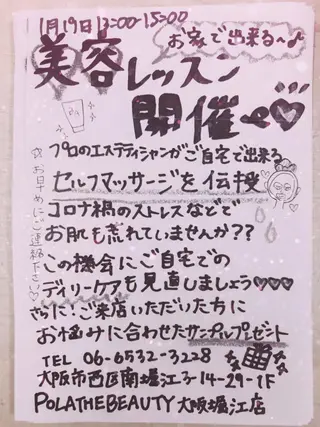 1月19日 13:00-15:00
お家で出来る〜♪
美容レッスン
開催〜♡
プロのエステティシャンがご自宅で出来る
セルフマッサージを伝授
コロナ禍のストレスなどで
お肌も荒れていませんか??
この機会にご自宅での
デイリーケアも見直しましょう♡♡♡
さらに!ご来店いただいた方に
お悩みに合わせたサンプルプレゼント
TEL 06-6532-3228
大阪市西区南堀江3-14-29-1F
POLA THE BEAUTY 大阪堀江店
☆お早めにご連絡下さい♡